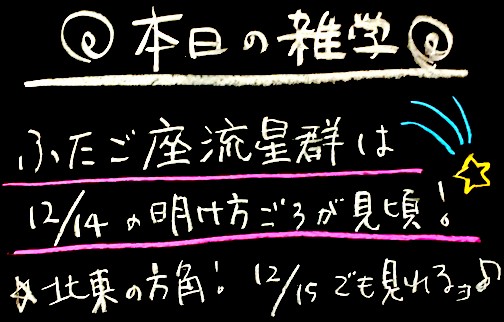 本日の雑学
ふたご座流星群は
12/14の明け方ごろが見頃！
☆北東の方角！ 12/15でも見れるヨ♪